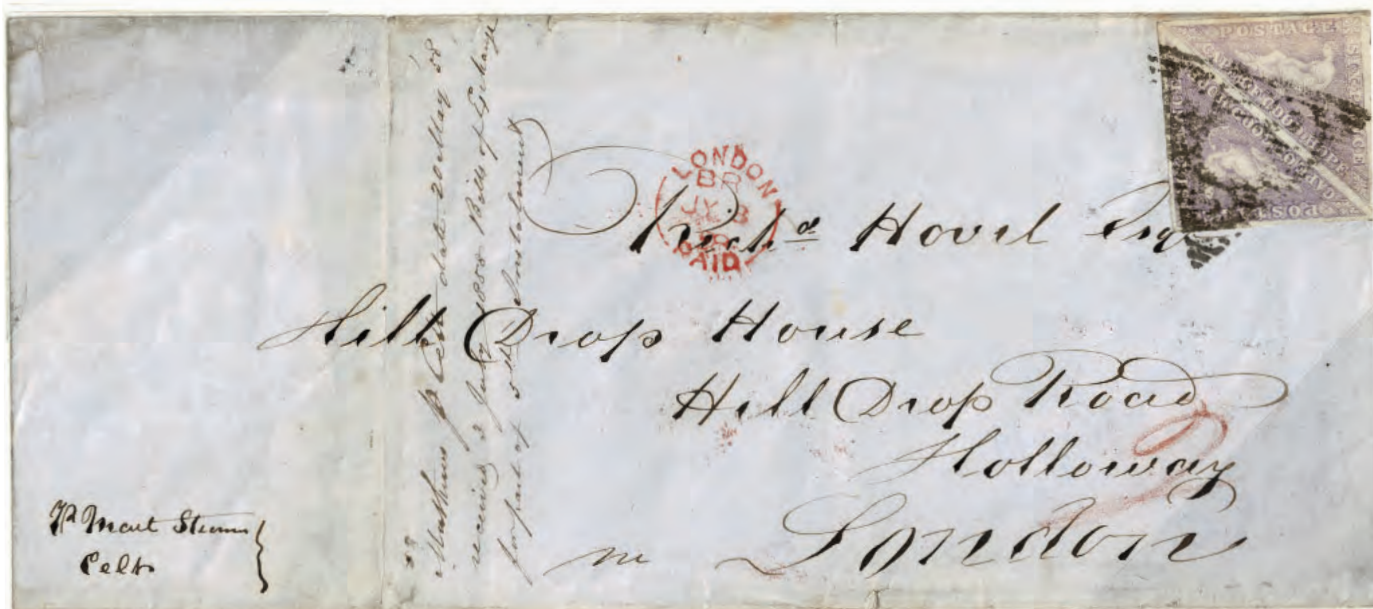 POSTAGE
SIX PENCE
CAPE OF GOOD HOPE
CAPE OF GOOD HOPE
LONDON
BR
JY 3
58
PAID
Richd Hovil Esq
Hill Drop House
Hill Drop Road
Holloway
London
Pr Mail Steamer
Celt
date 20 May 58
received 3 July 1858 Bills of Exchange
for part of 5th Instalment